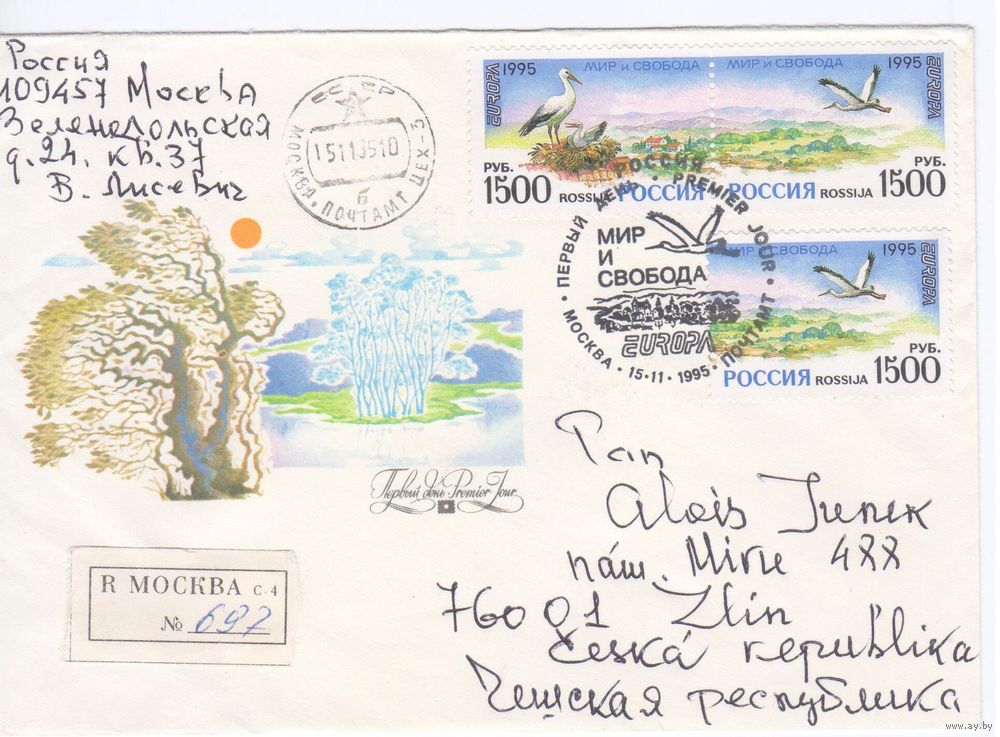 Россия
109457 Москва
Зеленодольская
д.24. кв.37
В. Лисевич
СССР
МОСКВА, ПОЧТАМТ ЦЕХ-3
1511199510
б
EUROPA 1995 МИР И СВОБОДА
МИР И СВОБОДА 1995 EUROPA
РУБ. 1500 ROSSIJA РОССИЯ
РОССИЯ ROSSIJA РУБ. 1500
РОССИЯ
ПЕРВЫЙ ДЕНЬ · PREMIER JOUR
МИР
И
СВОБОДА
EUROPA
МОСКВА · 15·11·1995 · ПОЧТАМТ
СВОБОДА 1995 EUROPA
РУБ.
РОССИЯ ROSSIJA 1500
Первый день · Premier Jour
R МОСКВА С-4
№ 697
Pan
Alois
nám. Míru 488
76001 Zlín
Česká republika
Чешская республика
www.ay.by